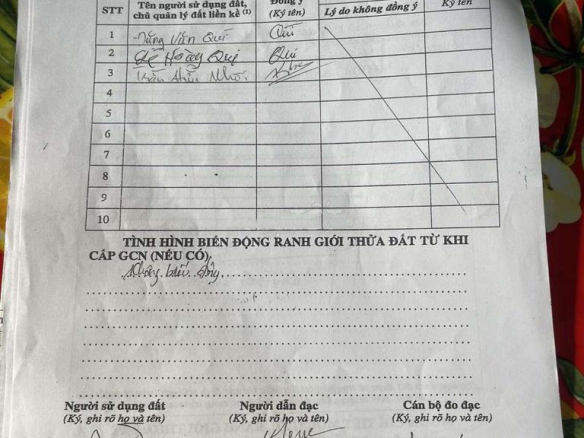 STT Tên người sử dụng đất, chủ quản lý đất liền kề (1) Đồng ý (Ký tên) Lý do không đồng ý Ký tên
1 Văn Quí Quí
2 Lê Hoàng Qui Qui
3 Trần Nhơ
4
5
6
7
8
9
10
TÌNH HÌNH BIẾN ĐỘNG RANH GIỚI THỬA ĐẤT TỪ KHI
CẤP GCN (NẾU CÓ)
Không biến động
Người sử dụng đất Người dẫn đạc Cán bộ đo đạc
(Ký, ghi rõ họ và tên) (Ký, ghi rõ họ và tên) (Ký, ghi rõ họ và tên)